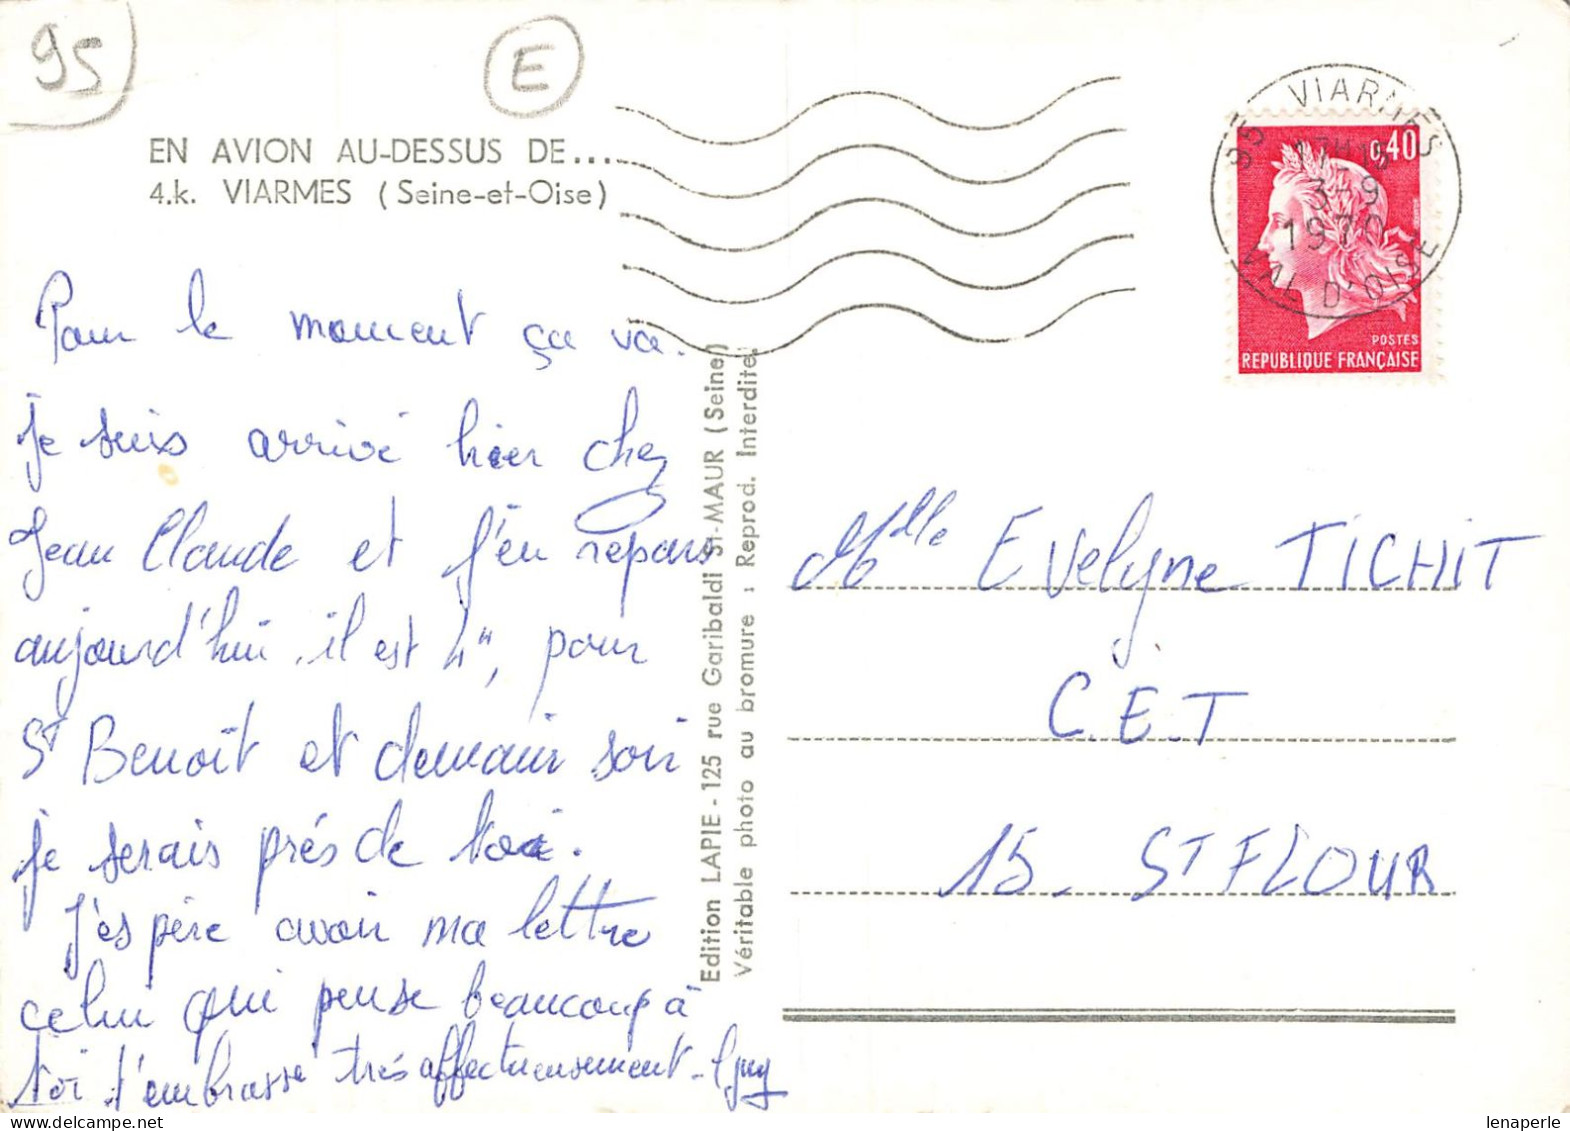 95
E
EN AVION AU-DESSUS DE...
4.k. VIARMES (Seine-et-Oise)
95 VIARMES
17H15
3-9
1970
VAL D'OISE
0,40
POSTES
REPUBLIQUE FRANÇAISE
Pour le moment ça va.
je suis arrivé hier chez
Jean Claude et j'en repars
aujourd'hui il est 4H, pour
St Benoît et demain soir
je serais prés de toi.
J'éspère avoir ma lettre
celui qui pense beaucoup à
toi t'embrasse trés affectueusement. Guy
Edition LAPIE - 125 rue Garibaldi St-MAUR (Seine)
Véritable photo au bromure : Reprod. Interdite.
Mlle Evelyne TICHIT
C.E.T
15 - ST FLOUR
lenaperle